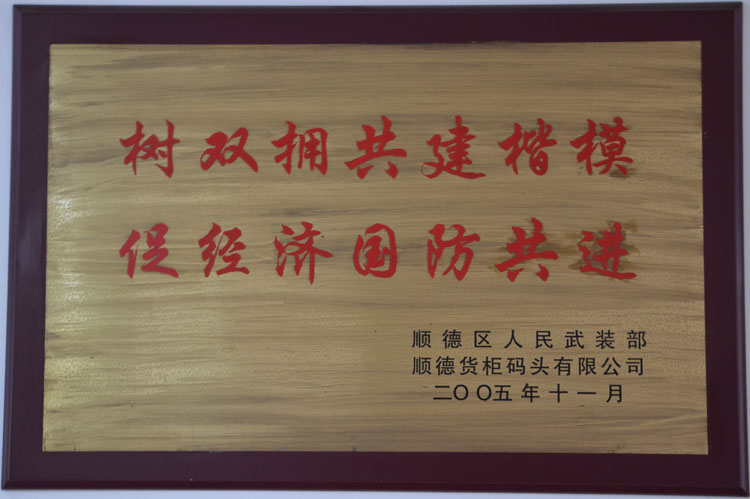 树双拥共建楷模
促经济国防共进
顺德区人民武装部
顺德货柜码头有限公司
二〇〇五年十一月